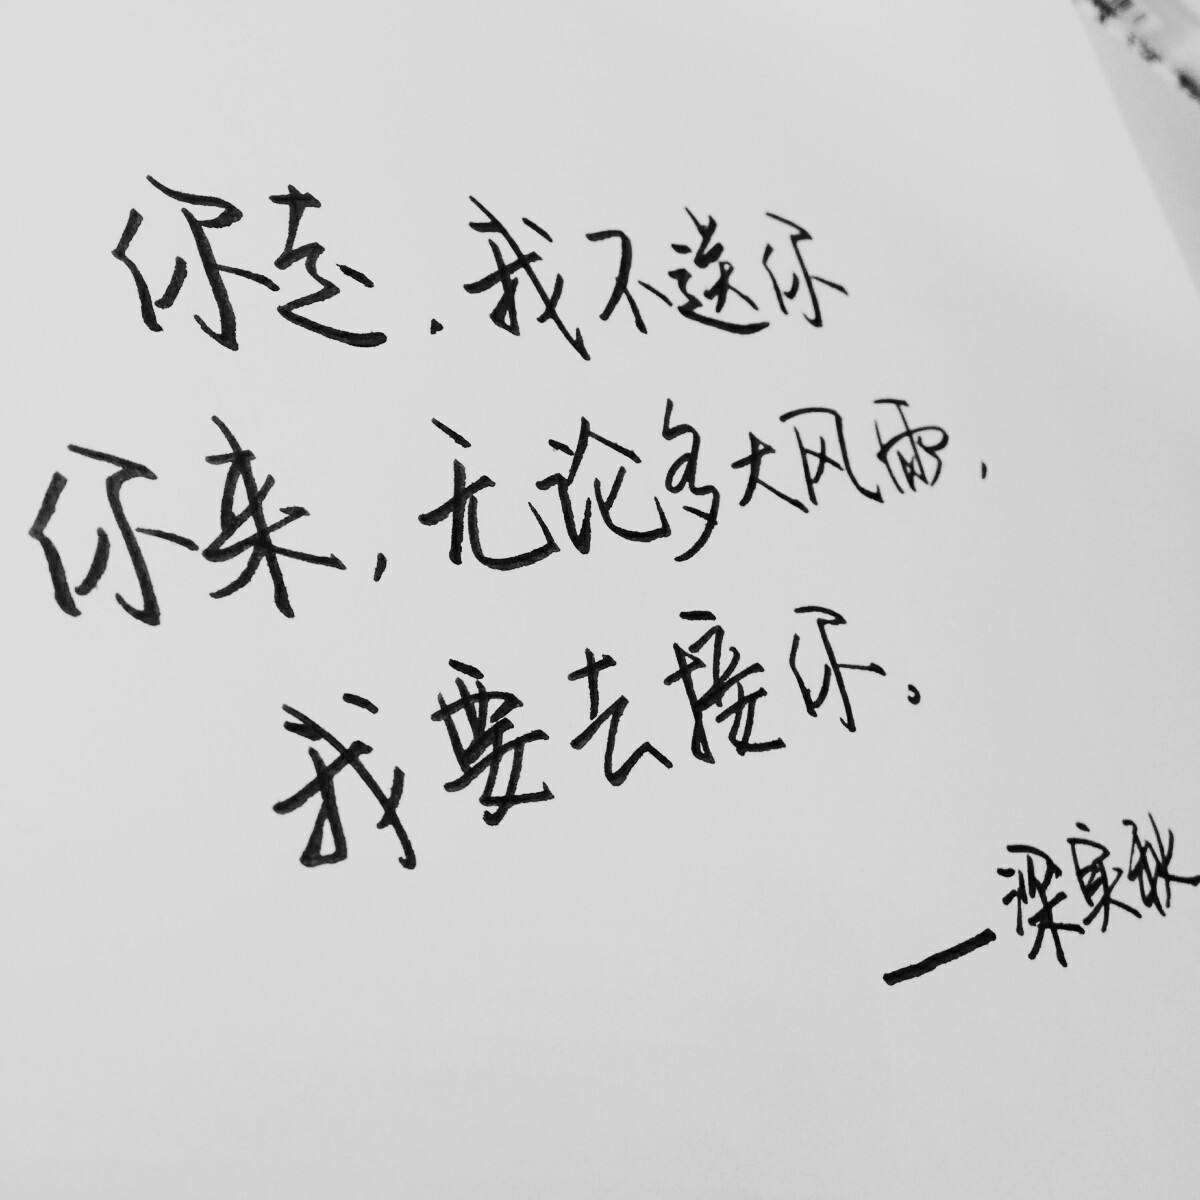 你走．我不送你
你来，无论多大风雨，
我要去接你。
—梁实秋